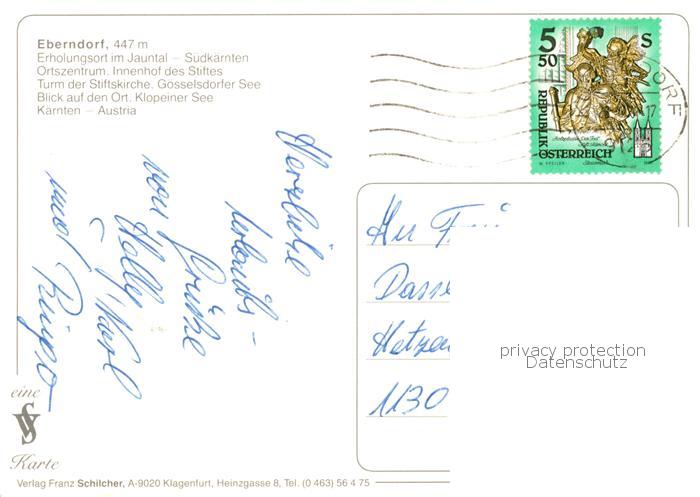 Eberndorf, 447 m
Erholungsort im Jauntal – Südkärnten
Ortszentrum. Innenhof des Stiftes
Turm der Stiftskirche. Gösselsdorfer See
Blick auf den Ort. Klopeiner See
Kärnten – Austria
5 50 S
REPUBLIK
ÖSTERREICH
DORF
17
Herzliche
Urlaubs-
grüße
von
Holly, Karl
und
eine
Karte
Verlag Franz Schilcher, A-9020 Klagenfurt, Heinzgasse 8, Tel. (0 463) 56 4 75
1130
privacy protection
Datenschutz